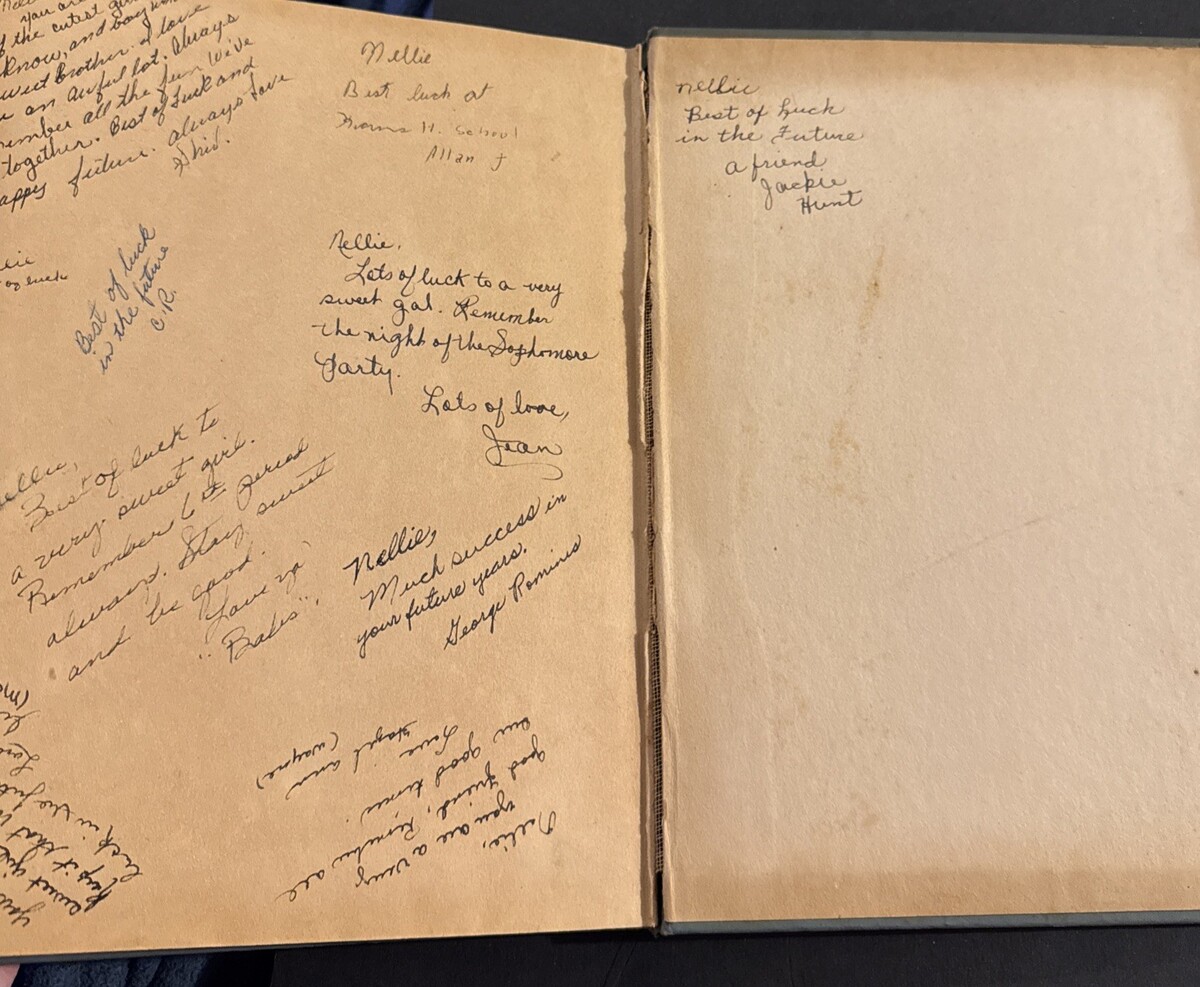 you are
of the cutest
know, and boy
sweet Brother. I love
an awful lot. Always
remember all the fun we've
together. Best of Luck and
happy future. Always Love
Shid.
Nellie
Best luck at
H. School
Allan J
of luck
Best of luck
in the future
C.R.
Nellie,
Lots of luck to a very
sweet gal. Remember
the night of the Sophomore
Party.
Lots of love,
Jean
Nellie,
Best of luck to
a very sweet girl.
Remember 6th period
always. Stay sweet
and be good.
Love ya
"Babs".
Nellie,
Much success in
your future years.
George Rominis
Nellie,
you are a very
good friend, Remember all
our good times.
Love
Hazel Ann (Wayne)
sweet girl
Keep it that
luck in the
Nellie
Best of Luck
in the Future
a friend
Jackie
Hunt